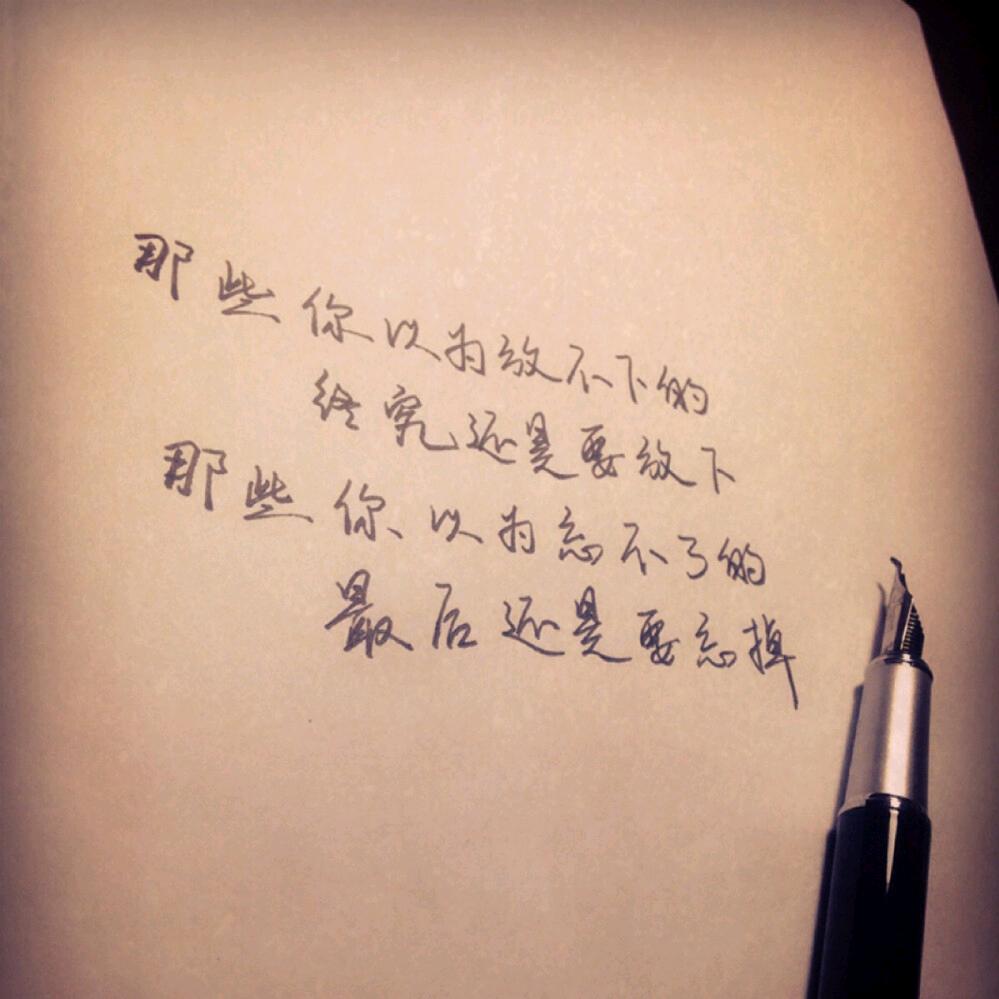 那些你以为放不下的
终究还是要放下
那些你以为忘不了的
最后还是要忘掉